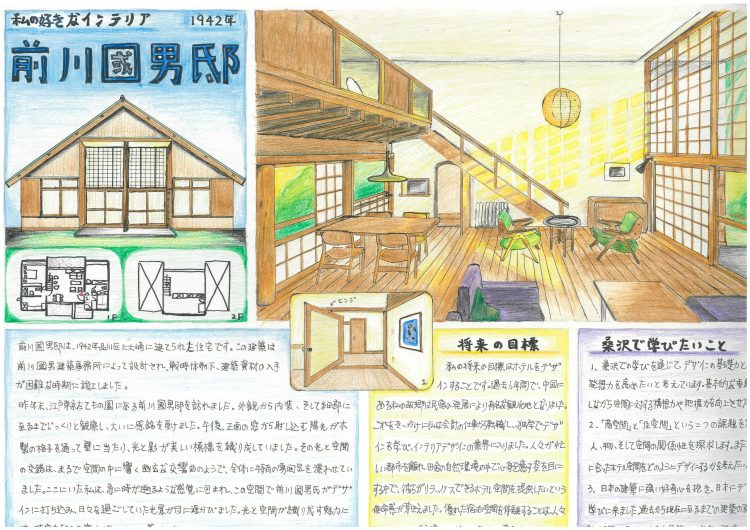 私の好きなインテリア 1942年
前川國男邸
1F
2F
ヒンジ
1.
前川國男邸は、1942年品川区上大崎に建てられた住宅です。この建築は
前川國男建築事務所によって設計され、戦時体制下、建築資材の入手
が困難な時期に竣工しました。
昨年末、江戸東京たてもの園にある前川國男邸を訪れました。外観から内装、そして細部に
至るまでじっくりと観察し、大いに感銘を受けました。午後、正面の窓から射し込む陽光が木
製の格子を通って壁に当たり、光と影が美しい模様を織り成していました。その光と空間
の交錯は、まるで空間の中に響く幽玄な交響曲のようで、全体に特有の雰囲気を漂わせてい
ました。ここにいた私は、急に時が遡るような感覚に包まれ、この空間で前川國男氏がデザ
インに打ち込み、日々を過ごしていた光景が目に浮かびました。光と空間が織り成す魅力に
将来の目標
私の将来の目標はホテルをデザ
インすることです。過去数年間で、中国に
ある私の故郷は民宿の発展により有名な観光地となりました。
これをきっかけに、私は会計の仕事から転職し、独学でデザイン
を学び、インテリアデザインの業界に入りました。人々が忙
しい都市を離れ、田舎の自然環境の中で心身を癒す姿を目に
する中で、彼らがリラックスできるホテル空間を提供したいという
使命感が芽生えました。優れた宿泊空間を体験するには、人
桑沢で学びたいこと
1、桑沢での学びを通じて、デザインの基礎力と
発想力を高めたいと考えています。基本的な事
しながら空間に対する構想力や把握力を向上させた
2、「商空間」と「住空間」という二つの課題を
人、物、そして空間の関係性を探求します。
に合ったホテル空間をどのようにデザインするかを考えたい
3、日本の建築に強い好奇心を抱き、日本にデ
学びに来ました。過去から現在に至るまでの建築の